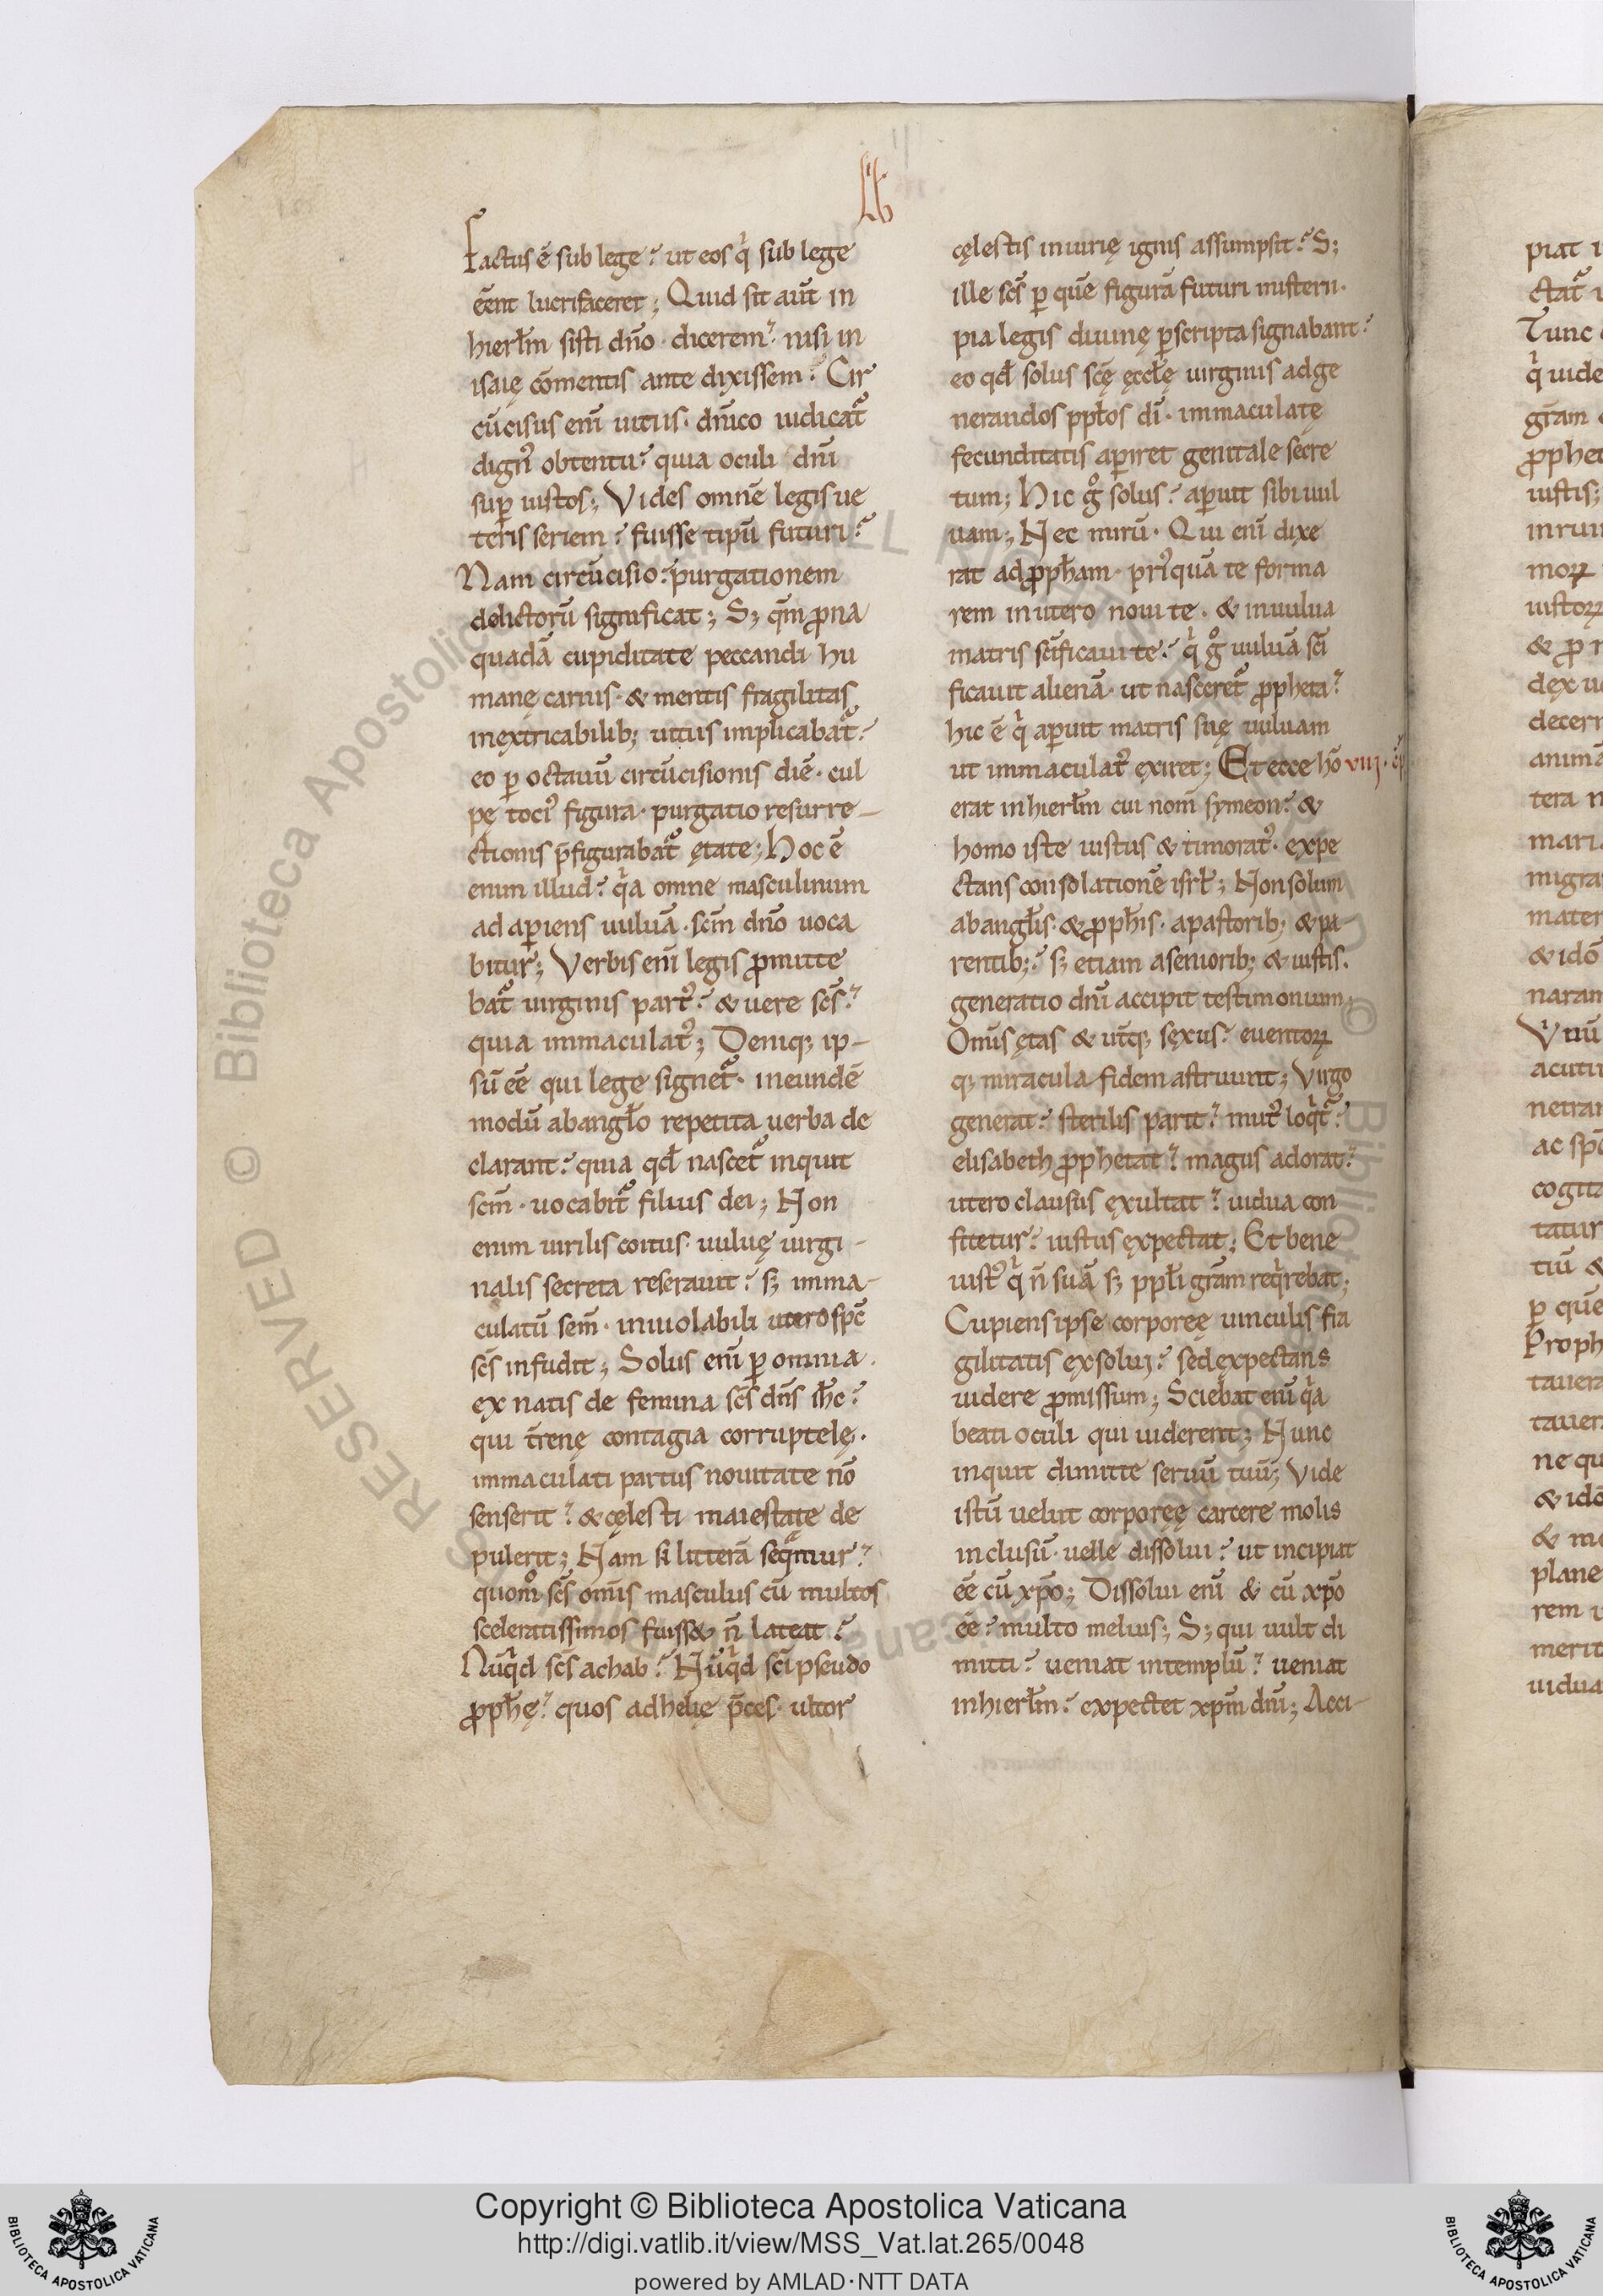 Lib
Factus ē sub lege? ut eos qͥ sub lege
eēnt lucrifaceret; Quid sit aut̄ in
hierl̄m sisti dn̄o · dicerem? nisi in
isaię cōmentis ante dixissem? Cir
cūcisus enī uitiis · dn̄ico iudicat᷑
dignꝰ obtentu? quia oculi dn̄i
suꝑ iustos; Vides omnē legis ue
teris seriem? fuisse tipū futuri?
Nam circūcisio? purgationem
delictorū significat; S; qm̄ ꝓna
quadā cupiditate peccandi hu
manę carnis · & mentis fragilitas
inextricabilib; uitiis implicabat᷑?
eo ꝑ octauū circūcisionis diē · cul
pę tociꝰ figura · purgatio resurre-
ctionis p̄figurabat᷑ ętate; Hoc ē
enim illud? qͥa omne masculinum
ad aꝑiens uuluā · scm̄ dn̄o uoca
bitur; Verbis enī legis ꝓmitte
bat᷑ uirginis partꝰ? & uere scs̄?
quia immaculatꝰ; Deniq; ip-
sū eē qui lege signet᷑ · ineundē
modū ab angl̄o repetita uerba de
clarant? quia qd̄ nascet᷑ inquit
scm̄ · uocabit᷑ filius dei; Non
enim uirilis coitus uuluę uirgi-
nalis secreta reserauit? s; imma-
culatū sem̄ · inuiolabili utero spc̄
scs̄ infudit; Solus enī ꝑ omnia
ex natis de femina scs̄ dn̄s ih̄c?
qui t̄renę contagia corruptelę ·
immaculati partus nouitate nō
senserit? & cęlesti maiestate de
pulerit; Nam si litterā seqͣmur?
quom̊ scs̄ omīs masculus cū multos
sceleratissimos fuiss& n̄ lateat?
Nūqͥd scs̄ achab? Nūqͥd sc̄i pseudo
ꝓph̄ę? quos ad helię p̄ces · ultor
cęlestis iniurię ignis assumpsit? S;
ille scs̄ ꝑ quē figurā futuri misterii ·
pia legis diuinę p̄scripta signabant?
eo qd̄ solus scę̄ ęccl̄ę uirginis ad ge
nerandos ppl̄os dī · immaculatę
fecunditatis aꝑiret genitale secre
tum; Hic g̊ solus? aꝑuit sibi uul
uam; Nec mirū · Qui enī dixe
rat ad ꝓph̄am · priꝰquā te forma
rem in utero noui te · & in uulua
matris sc̄ificaui te? qͥ g̊ uuluā sc̄i
ficauit alienā · ut nasceret᷑ ꝓpheta?
hic ē qͥ aꝑuit matris suę uuluam
ut immaculatꝰ exiret; Et ecce hō viij · cp̄
erat in hierl̄m cui nom̄ symeon? &
homo iste iustus & timoratꝰ · expe
ctans consolationē isrl̄; Non solum
ab angl̄is · & ꝓph̄is · a pastorib; & pa-
rentib;? s; etiam a seniorib; & iustis ·
generatio dn̄i accipit testimonium;
Omīs ętas & ut̄q; sexus? euentoꝝ
q; miracula fidem astruunt; Virgo
generat? sterilis parit? mutꝰ loqͥt᷑?
elisabeth ꝓphetat? magus adorat?
utero clausus exultat? uidua con
fitetur? iustus expectat; Et bene
iustꝰ qͥ n̄ suā s; ppl̄i gr̄am reqͥrebat;
Cupiens ipse corporeę uinculis fra
gilitatis exsolui? sed expectans
uidere ꝓmissum; Sciebat enī qͥa
beati oculi qui uiderent; Nunc
inquit dimitte seruū tuū; Vide
istū uelut corporeę carcere molis
inclusū · uelle dissolui? ut incipiat
eē cū xp̄o; Dissolui enī & cū xp̄o
eē? multo melius; S; qui uult di
mitti? ueniat in templū? ueniat
in hierl̄m? expectet xp̄m dn̄i; Acci-
Copyright © Biblioteca Apostolica Vaticana
http://digi.vatlib.it/view/MSS_Vat.lat.265/0048
powered by AMLAD·NTT DATA